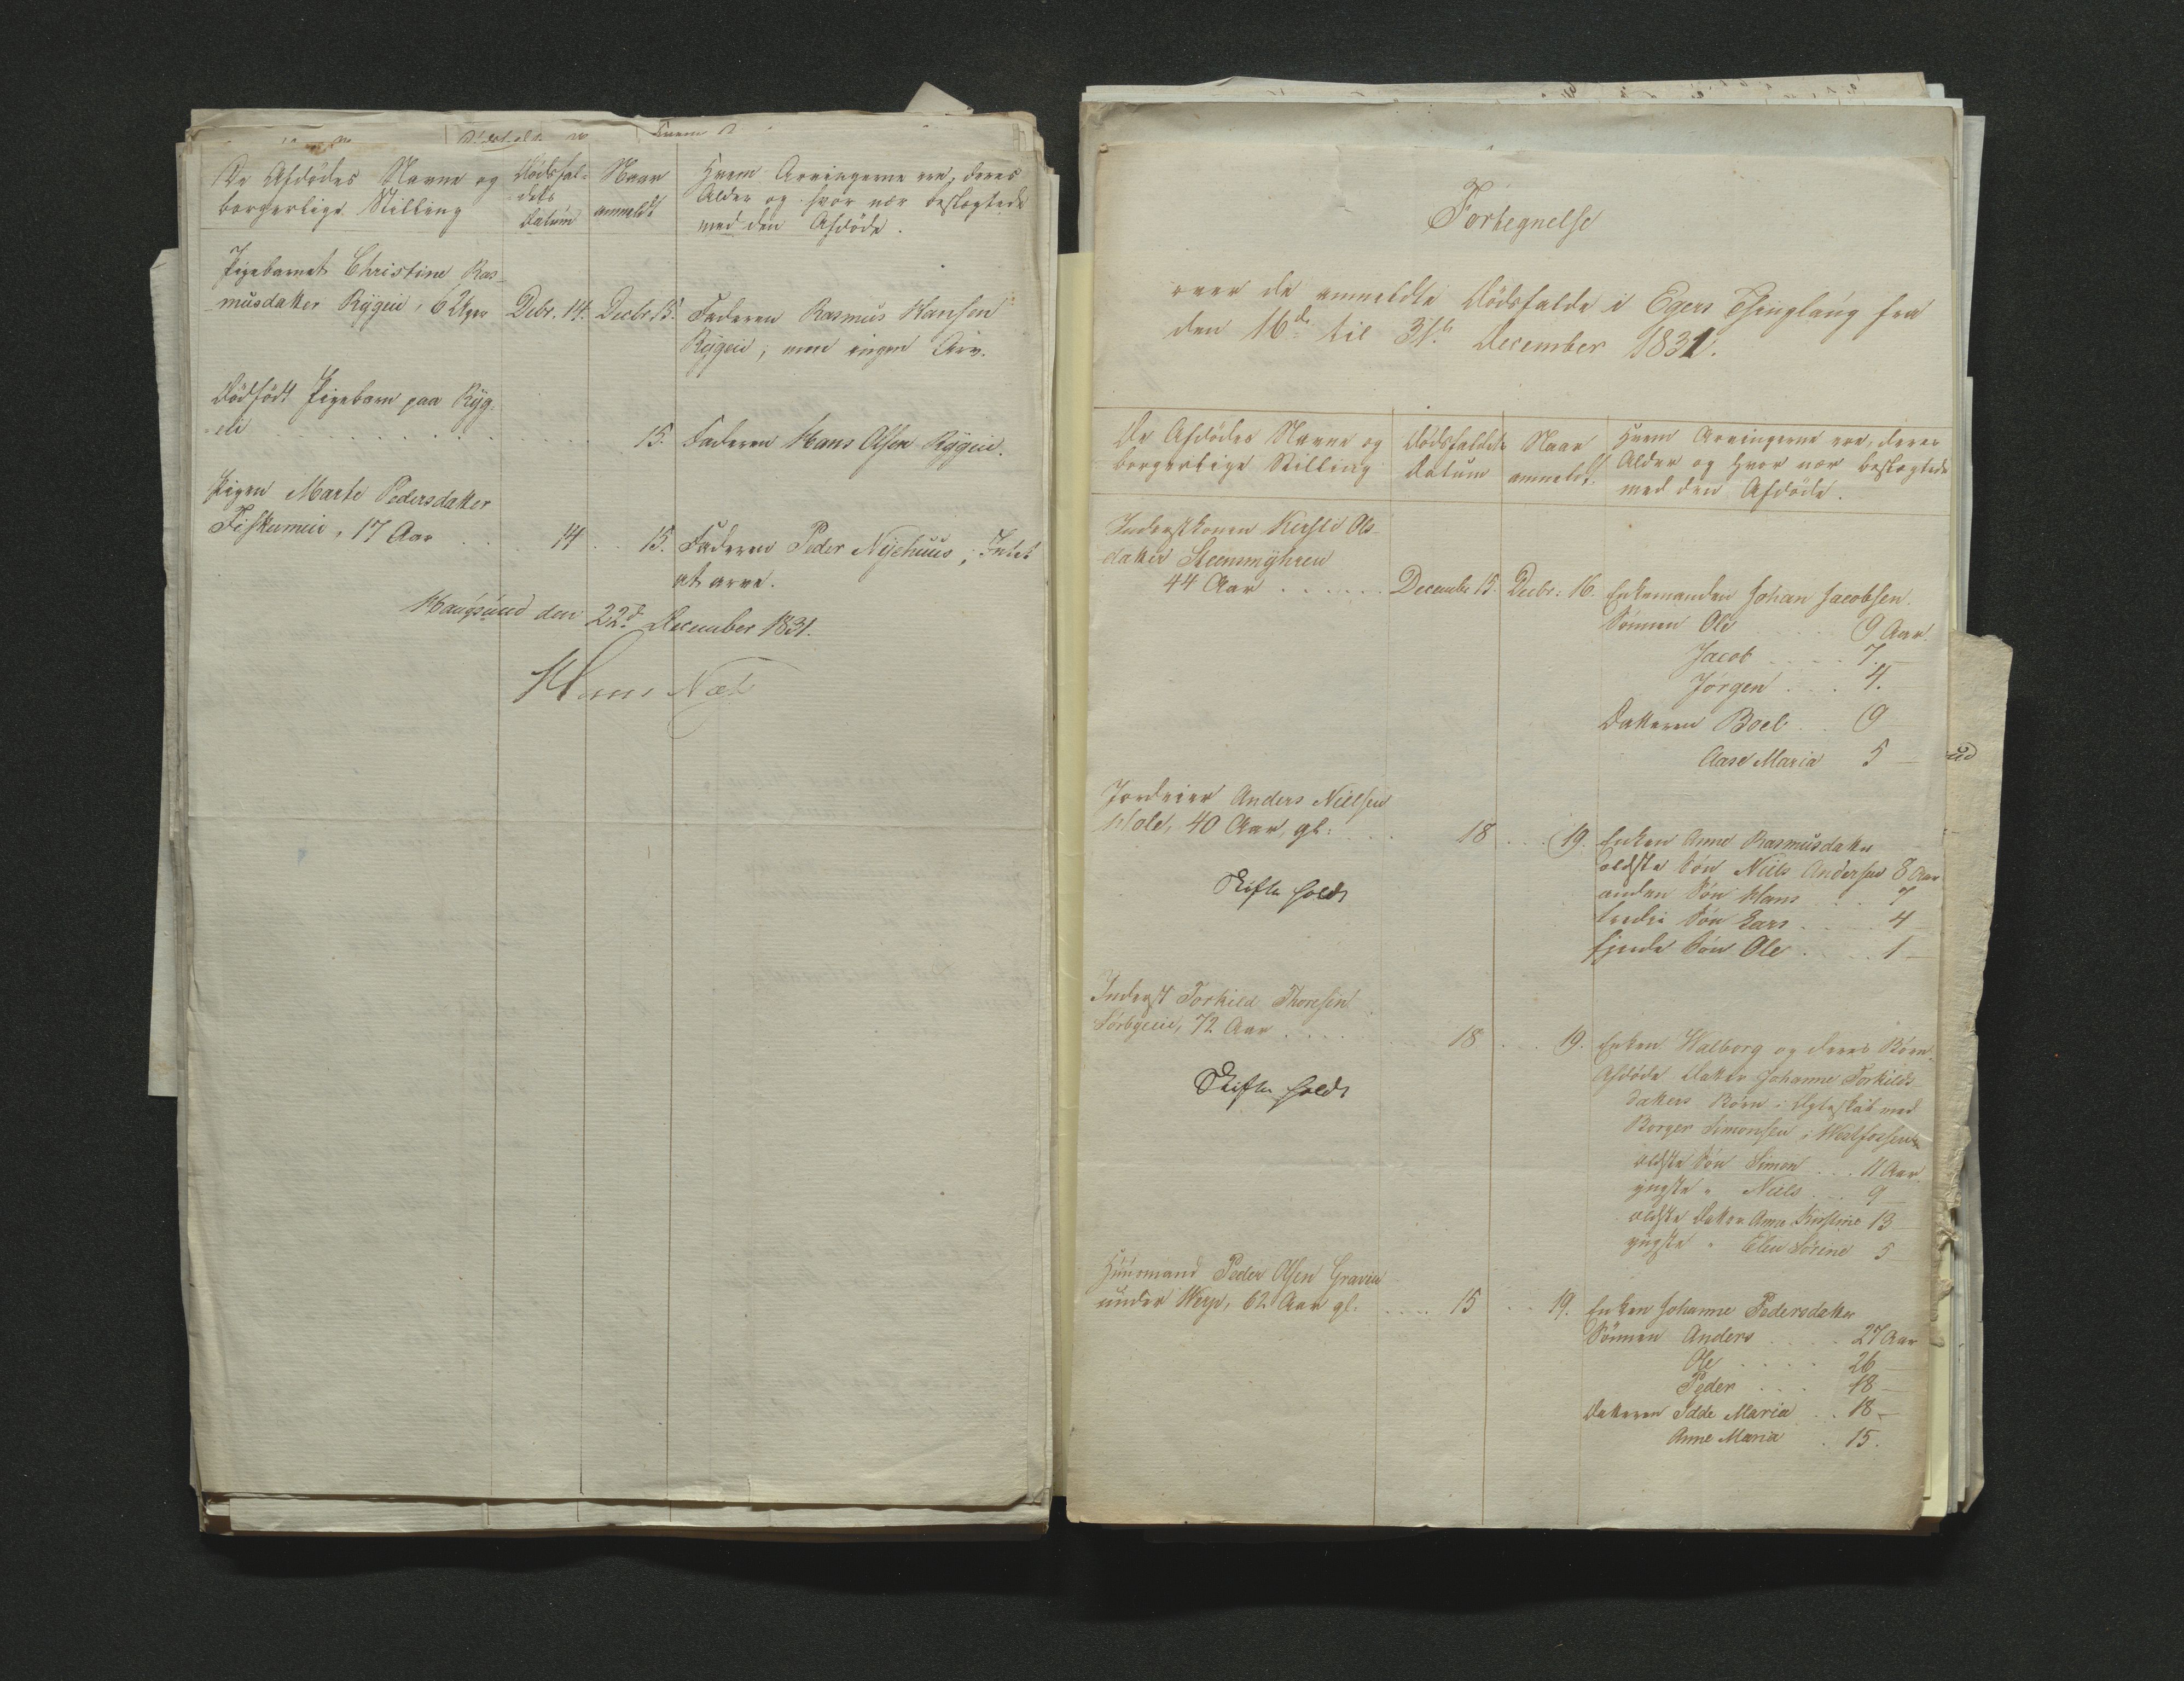 De Afdødes Navne og
borgerlige Stilling
Dødsfal-
dets
Datum
Naar
anmeldt
Hvem Arvingerne ere, deres
Alder og hvor nær beslægtede
med den Afdøde.
Pigebarnet Christine Ras-
musdatter Rygeie, 6 Uger Debr. 14. Decbr. 15. Faderen Rasmus Hansen
Rygeie, men ingen Arv.
Dødfødt Pigebarn paa Ryg-
eie . . . . 15. Faderen Hans Olsen Rygeie.
Pigen Marte Pedersdatter
Fiskumeie, 17 Aar . . . 14 . . 15. Faderen Peder Nyehuus, Intet
at arve.
Haugsund den 22de December 1831.
Hans
Fortegnelse
over de anmeldte Dødsfalde i Egers Thinglaug fra
den 16de til 31te December 1831.
De Afdødes Navne og
borgerlige Stilling
Dødsfaldets
Datum
Naar
anmeldt.
Hvem Arvingerne ere, deres
Alder og hvor nær beslægtede
med den Afdøde.
Inderstkonen Kirsti Ols-
datter Steenmyhren
44 Aar . . . . . . December 15. Decbr: 16. Enkemanden Johan Jacobsen.
Sønnen Ole . . . . 9 Aar.
Jacob . . . . 7. —
Jørgen . . . 4.
Datteren Boel . . 9
Aase Maria 5 —
Jordeier Anders Nielsen
Hole, 40 Aar, gl: . . . 18 . . . 19. Enken Anne Rasmusdatter
ældste Søn Niels Andersen 8 Aar
anden Søn Hans . . . 7
tredie Søn Lars . . . . 4 —
fjerde Søn Ole . . . . 1 —
Skifte holdt
Inderst Torkild Thoresen
Sørbyeeie, 72 Aar . . . . . 18 . . . 19. Enken Walborg og deres Børn.
Afdøde Datter Johanne Torkilds-
datters Børn i Ægteskab med
Borger Simonsen i Westfossen
ældste Søn Simon . . . 11 Aar.
yngste " Niels . . . 9 —
ældste Datter Anne Kirstine 13
yngste " Elen Sørine 5
Skifte holdt
Huusmand Peder Olsen Gravin
under Werp, 62 Aar gl. . . . . . 15 . . . 19. Enken Johanne Pedersdatter
Sønnen Anders . . . . 27 Aar
Ole . . . . 26 —
Peder . . . 18 —
Datteren Idde Maria . . 18 —
Anne Maria . 15.